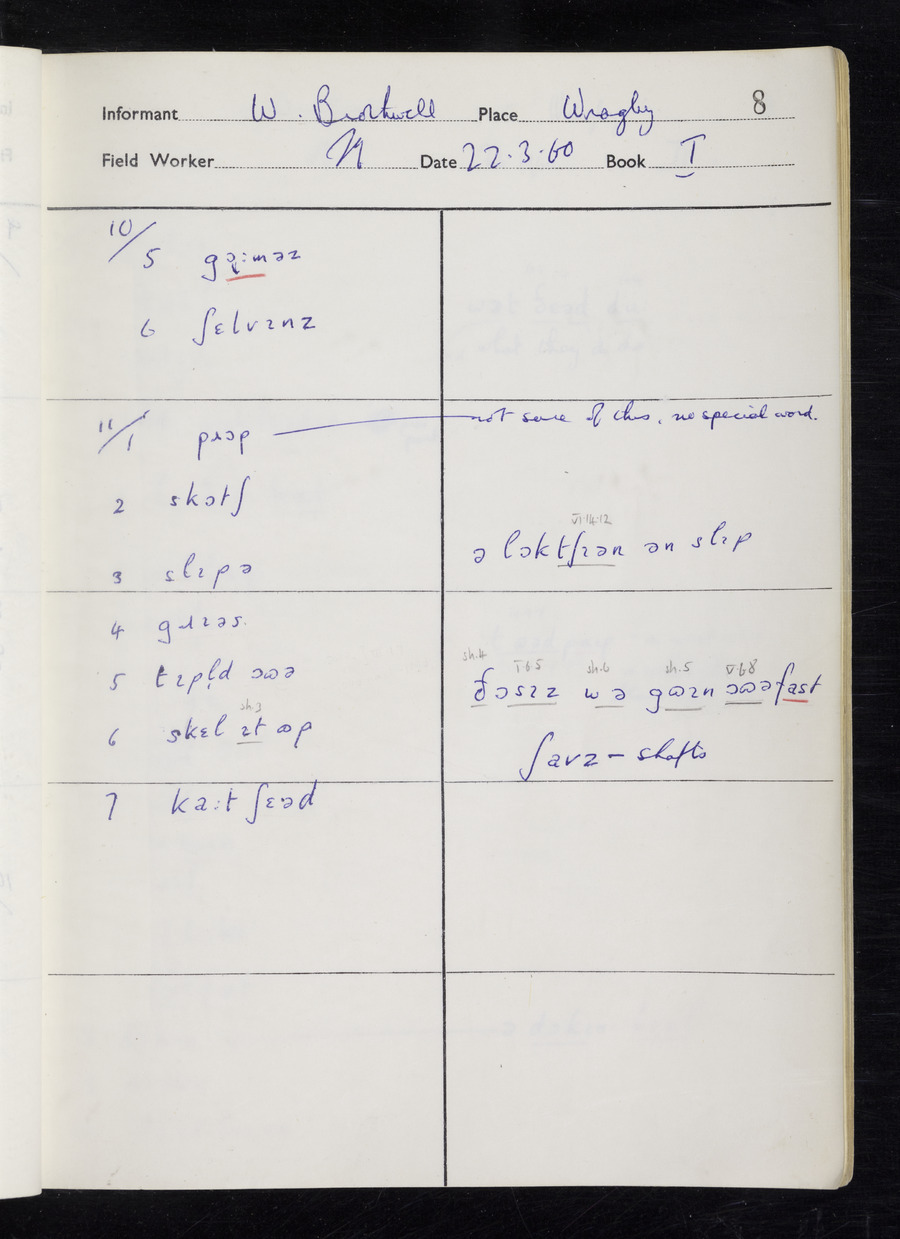 Informant W. Brothwell Place Wragby 8
Field Worker N Date 22.3.60 Book I
10/
5 gə̣:məz
6 ʃɛlvɪnz
11/1 pɹɔp not sure of this, no special word.
2 skɔtʃ
VI.14.12
3 slɪpə ə lɔktʃɪən ən slɪp
4 gɹɪəs.
sh.4 I.6.5 sh.6 sh.5 V.6.8
5 tɪpl̩d ɔωə ðɔsɪz wə gωɪn ɔωəfast
sh.3
6 skɛl ɪt ωp ʃavz – shafts
7 ka:t ʃɛəd